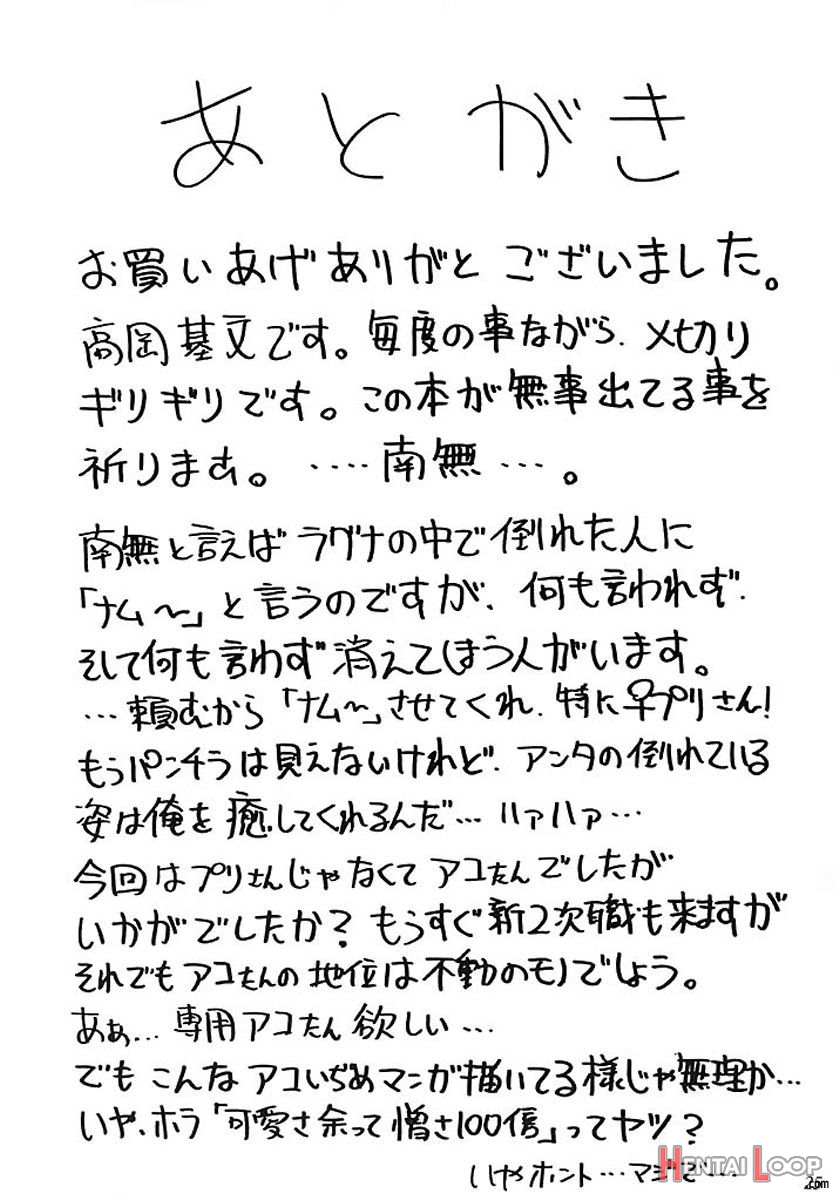 あとがき
お買いあげありがとございました。
高岡基文です。毎度の事ながら、〆切り
ギリギリです。この本が無事出てる事を
祈りまあ。‥‥南無…。
南無と言えばラグナの中で倒れた人に
「ナム〜」と言うのですが、何も言われず、
そして何も言わず消えてしまう人がいます。
…頼むから「ナム〜」させてくれ、特に♀プリさん!
もうパンチラは見えないけれど、アンタの倒れている
姿は俺を癒してくれるんだ…ハァハァ…
今回はプリさんじゃなくてアコたんでしたが
いかがでしたか?もうすぐ新2次職も来ますが
それでもアコたんの地位は不動のモノでしょう。
あぁ…専用アコたん欲しい…
でもこんなアコいぢめマンガ描いてる様じゃ無理か…
いや、ホラ「可愛さ余って憎さ100倍」ってヤツ?
いやホント…マジで…
HENTAI LOOP